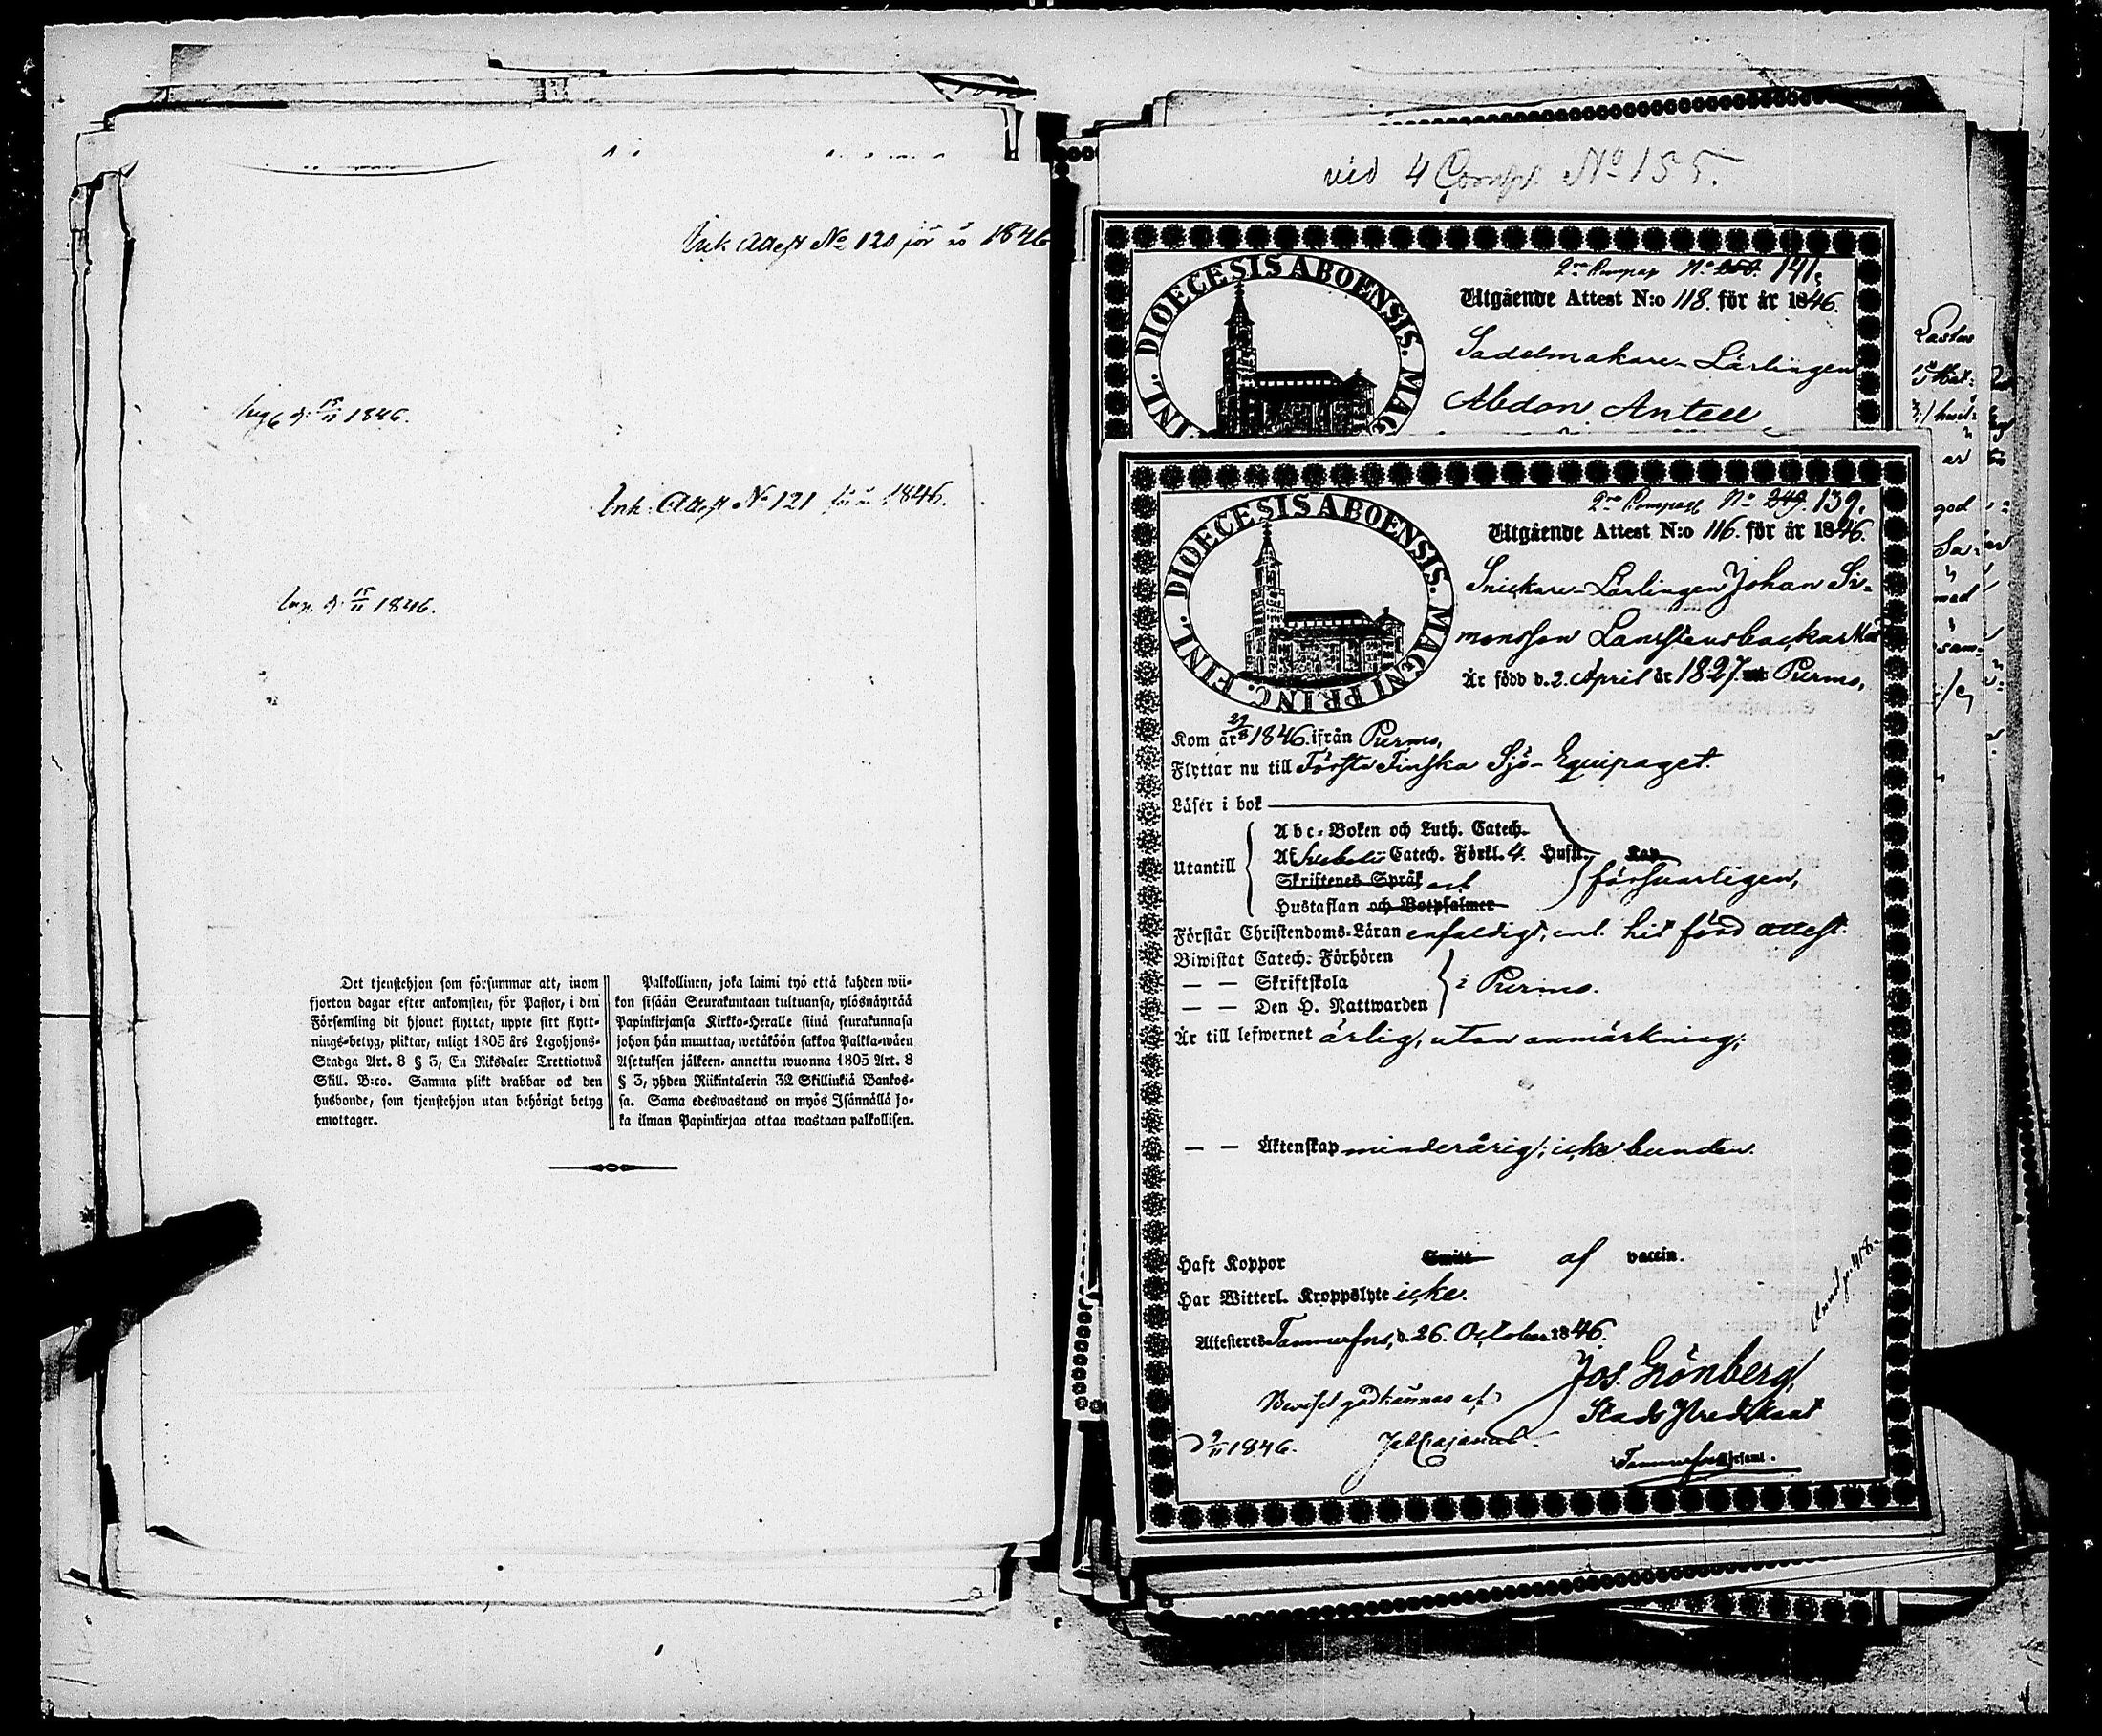 Ink Attest No 120 för år 1846
Ing. d. 15/11 1846.
Ink. Attest No 121 för år 1846.
Ing. d. 15/11 1846.
Det tjenstehjon som försummar att, inom
fjorton dagar efter ankomsten, för Pastor, i den
Församling dit hjonet flyttat, uppte sitt flytt-
nings-betyg, pliktar, enligt 1805 års Legohjons-
Stadga Art. 8 § 3, En Riksdaler Trettiotwå
Skill. B:co. Samma plikt drabbar ock den
husbonde, som tjenstehjon utan behörigt betyg
emottager.
Palkollinen, joka laimi työ että kahden wii-
kon sisään Seurakuntaan tultuansa, ylösnäyttää
Papinkirjansa Kirkko-Heralle siinä seurakunnasa
johon hän muuttaa, wetäköön sakkoa Palkka-wäen
Asetuksen jälkeen, annettu wuonna 1805 Art. 8
§ 3, yhden Riikintalerin 32 Skillinkiä Bankos-
sa. Sama edeswastaus on myös Isännällä jo-
ka ilman Papinkirjaa ottaa wastaan palkollisen.
vid 4 Comp. No 155.
DIOECESIS ABOENSIS. MAG
INL.
2ra Compag No 141.
Utgående Attest N:o 118. för år 1846.
Sadelmakare-Lärlingen
Abdon Antell
DIOECESIS ABOENSIS. MAGNI PRINC. FINL.
2ra Compag No 249. 139.
Utgående Attest N:o 116. för år 1846.
Snickare-Lärlingen Johan Si-
monsson
Är född d. 2. April år 1827. uti Purmo,
Kom år 29/8 1846. ifrån Purmo,
Flyttar nu till Första Finska Sjö-Equipaget.
Läser i bok
Utantill
Abc-Boken och Luth. Catech.
Af Catech. Förkl. 4. Hufst. Kap.
Skriftenes Språk och
Hustaflan och Botpsalmer
försvarligen,
Förstår Christendoms-Läran enfaldigt, enl. hit förd attest.
Biwistat Catech. Förhören
— — Skriftskola
— — Den H. Nattwarden
i Purmo.
Är till lefwernet ärlig, utan anmärkning;
— — Äktenskap minderårig; icke bunden.
Haft Koppor Smitt af vaccin.
Har Witterl. Kroppslyte icke.
Attesteras Tammerfors, d. 26. October 1846.
Jos. Grönberg,
Stads Predikant
Tammerfors Församl.
Beviset godkännes af
d 9/11 1846.